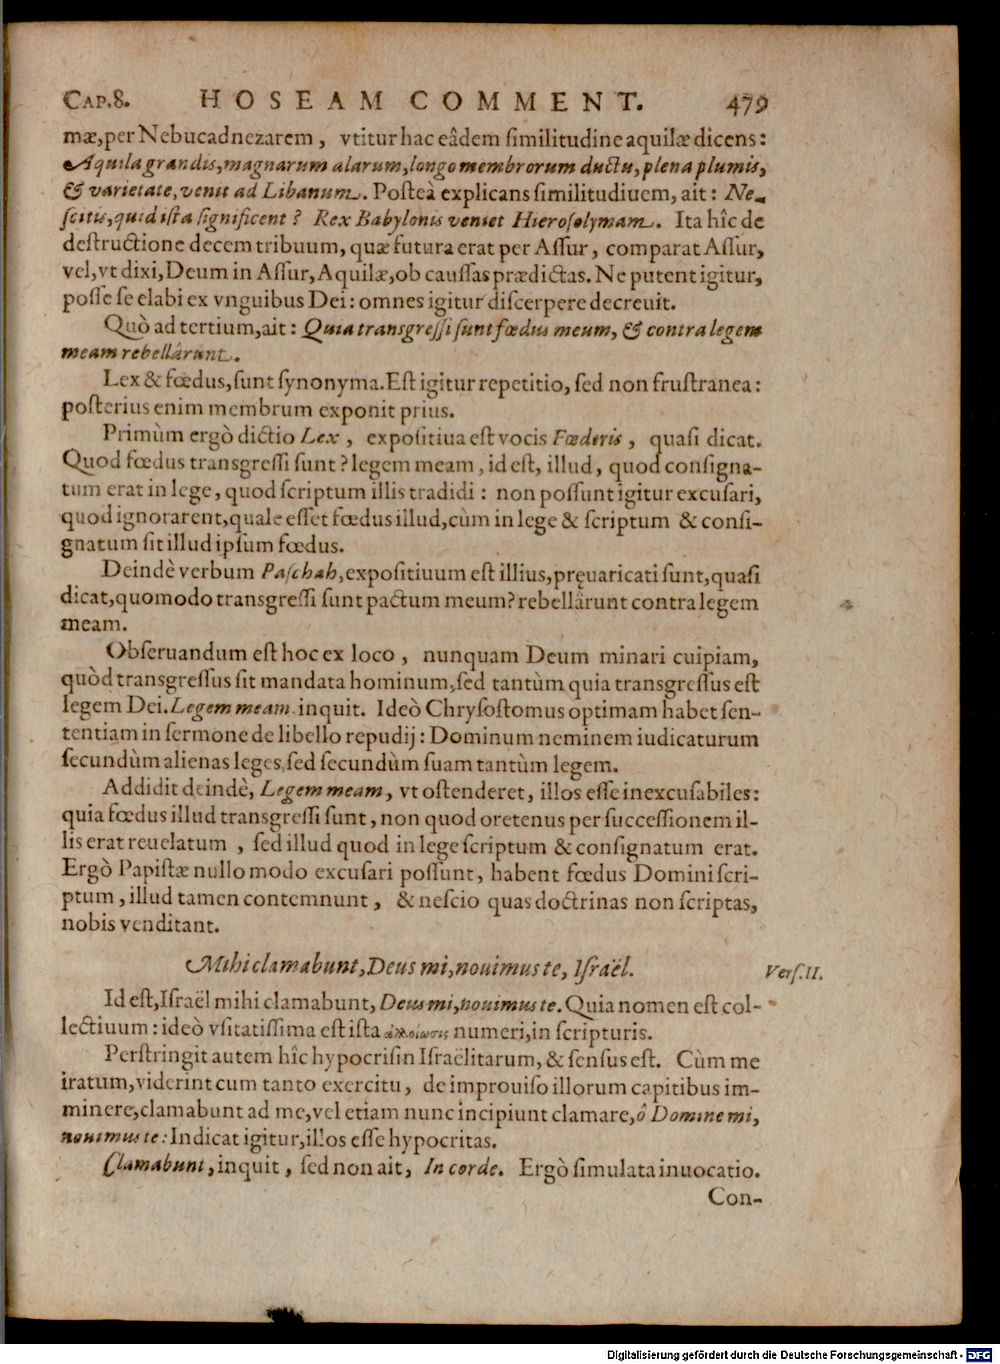 CAP.8. HOSEAM COMMENT. 479
mæ, per Nebucadnezarem, vtitur hac eâdem ſimilitudine aquilæ dicens:
Aquila grandis, magnarum alarum, longo membrorum ductu, plena plumis,
& varietate, venit ad Libanum. Poſteà explicans ſimilitudiuem, ait: Ne-
ſcitis, quid iſta ſignificent? Rex Babylonis veniet Hieroſolymam. Ita hîc de
deſtructione decem tribuum, quæ futura erat per Aſſur, comparat Aſſur,
vel, vt dixi, Deum in Aſſur, Aquilæ, ob cauſſas prædictas. Ne putent igitur,
poſſe ſe elabi ex vnguibus Dei: omnes igitur diſcerpere decreuit.
Quò ad tertium, ait: Quia transgreſſi ſunt fœdus meum, & contra legem
meam rebellârunt.
Lex & fœdus, ſunt ſynonyma. Eſt igitur repetitio, ſed non fruſtranea:
poſterius enim membrum exponit prius.
Primùm ergò dictio Lex, expoſitiua eſt vocis Fœderis, quaſi dicat.
Quod fœdus transgreſſi ſunt? legem meam, id eſt, illud, quod conſigna-
tum erat in lege, quod ſcriptum illis tradidi: non poſſunt igitur excuſari,
quod ignorarent, quale eſſet fœdus illud, cùm in lege & ſcriptum & conſi-
gnatum ſit illud ipſum fœdus.
Deindè verbum Paſchah, expoſitiuum eſt illius, pręuaricati ſunt, quaſi
dicat, quomodo transgreſſi ſunt pactum meum? rebellârunt contra legem
meam.
Obſeruandum eſt hoc ex loco, nunquam Deum minari cuipiam,
quòd transgreſſus ſit mandata hominum, ſed tantùm quia transgreſſus eſt
legem Dei. Legem meam inquit. Ideò Chryſoſtomus optimam habet ſen-
tentiam in ſermone de libello repudij: Dominum neminem iudicaturum
ſecundùm alienas leges, ſed ſecundùm ſuam tantùm legem.
Addidit deindè, Legem meam, vt oſtenderet, illos eſſe inexcuſabiles:
quia fœdus illud transgreſſi ſunt, non quod oretenus per ſucceſſionem il-
lis erat reuelatum, ſed illud quod in lege ſcriptum & conſignatum erat.
Ergò Papiſtæ nullo modo excuſari poſſunt, habent fœdus Domini ſcri-
ptum, illud tamen contemnunt, & neſcio quas doctrinas non ſcriptas,
nobis venditant.
Mihi clamabunt, Deus mi, nouimus te, Iſraël. Verſ. II.
Id eſt, Iſraël mihi clamabunt, Deus mi, nouimus te. Quia nomen eſt col-
lectiuum: ideò vſitatiſſima eſt iſta ἀλλοίωσις numeri, in ſcripturis.
Perſtringit autem hîc hypocriſin Iſraëlitarum, & ſenſus eſt. Cùm me
iratum, viderint cum tanto exercitu, de improuiſo illorum capitibus im-
minere, clamabunt ad me, vel etiam nunc incipiunt clamare, ô Domine mi,
nouimus te: Indicat igitur, illos eſſe hypocritas.
Clamabunt, inquit, ſed non ait, In corde. Ergò ſimulata inuocatio.
Con-
Digitalisierung gefördert durch die Deutsche Forschungsgemeinschaft - DFG